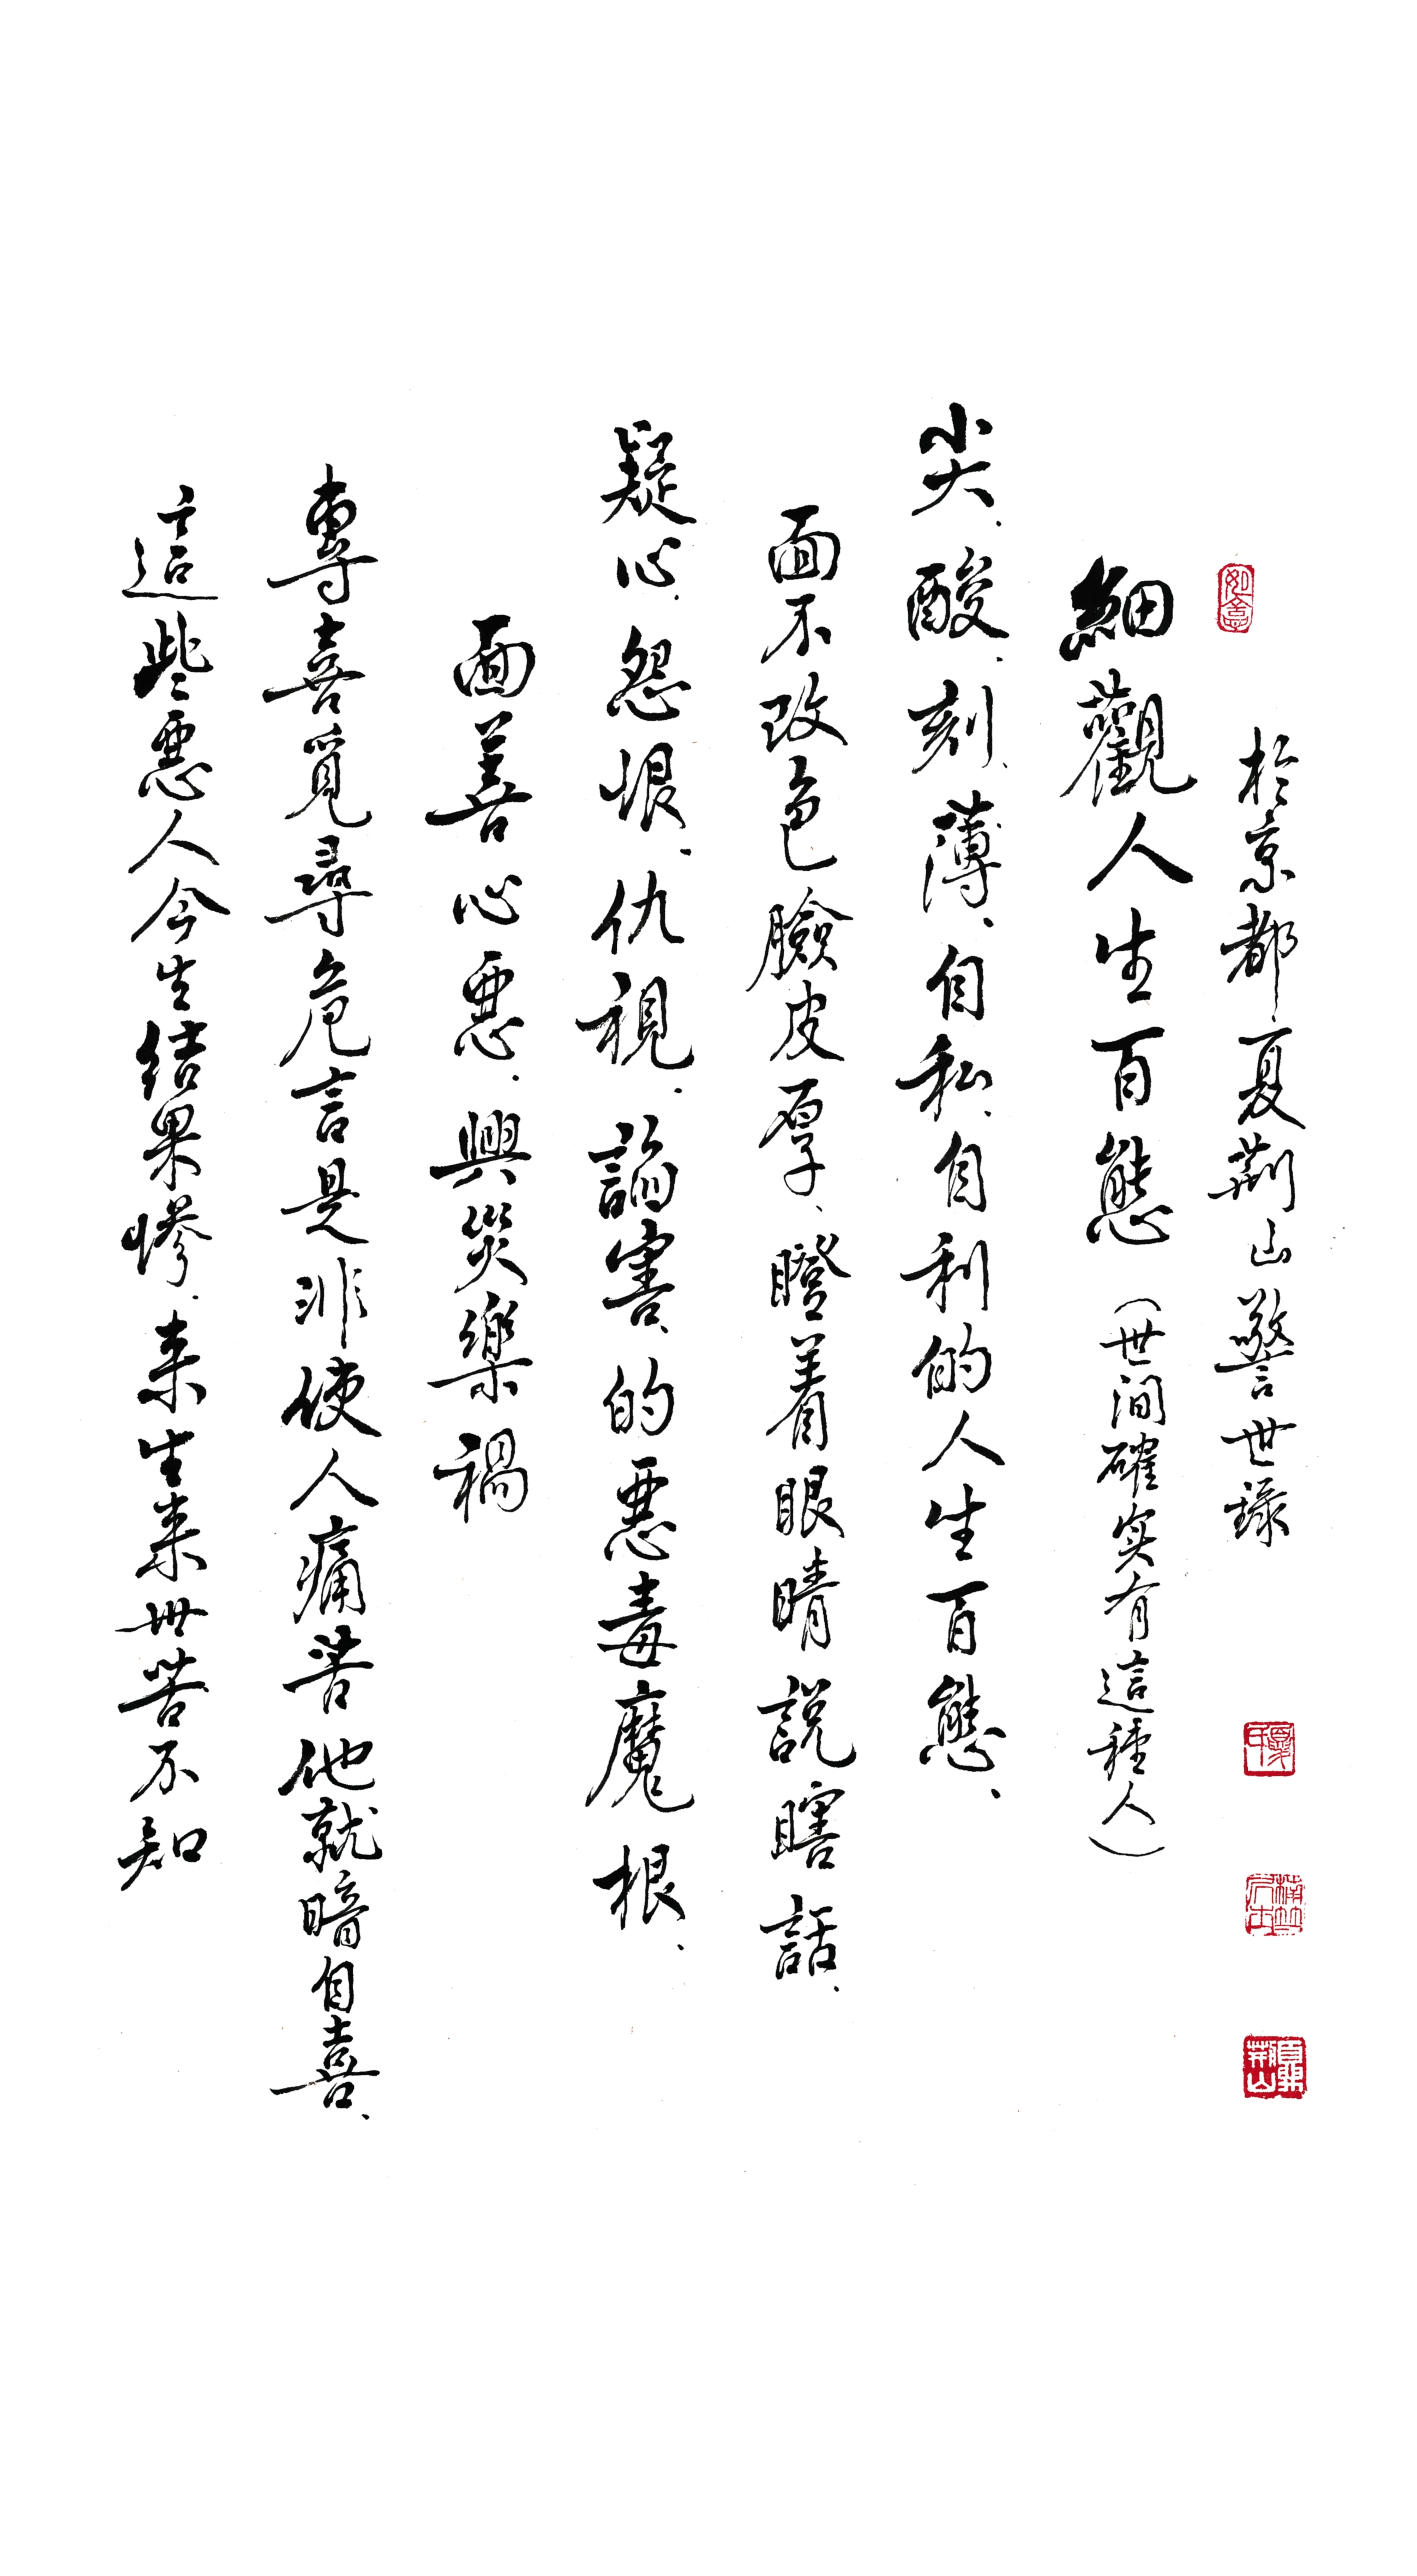 如意
於京都夏荊山警世录
細觀人生百態（世間確实有這種人）
尖、酸、刻、薄、自私、自利的人生百態、
面不改色臉皮厚、瞪着眼睛説瞎話、
疑心、怨恨、仇視、謟害、的惡毒魔根、
面善心惡、興災樂禍
專喜覓尋危言是非使人痛苦他就暗自喜、
這些惡人今生结果慘、来生来世苦不知
夏荊山